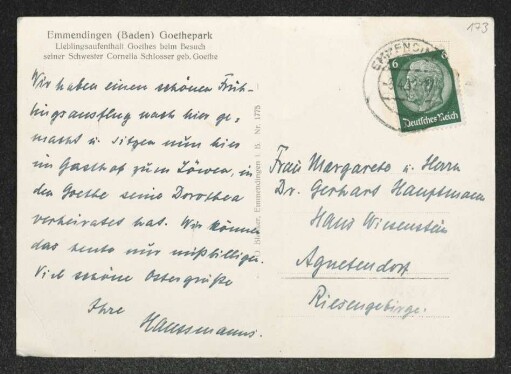 173
Emmendingen (Baden) Goethepark
Lieblingsaufenthalt Goethes beim Besuch
seiner Schwester Cornelia Schlosser geb. Goethe
Wir haben einen schönen Früh-
lingsausflug nach hier ge-
macht u. sitzen nun hier
im Gasthof zum Löwen, in
den Goethe seine Dorothea
verheiratet hat. Wir können
das heute nur mißbilligen.
Viel schöne Ostergrüße
Ihre
Haussmanns.
Emmendingen i. B. Nr. 1775
EMMENDINGEN
6 6
Deutsches Reich
Frau Margarete u. Herrn
Dr. Gerhart Hauptmann
Haus Wiesenstein
Agnetendorf
Riesengebirge.